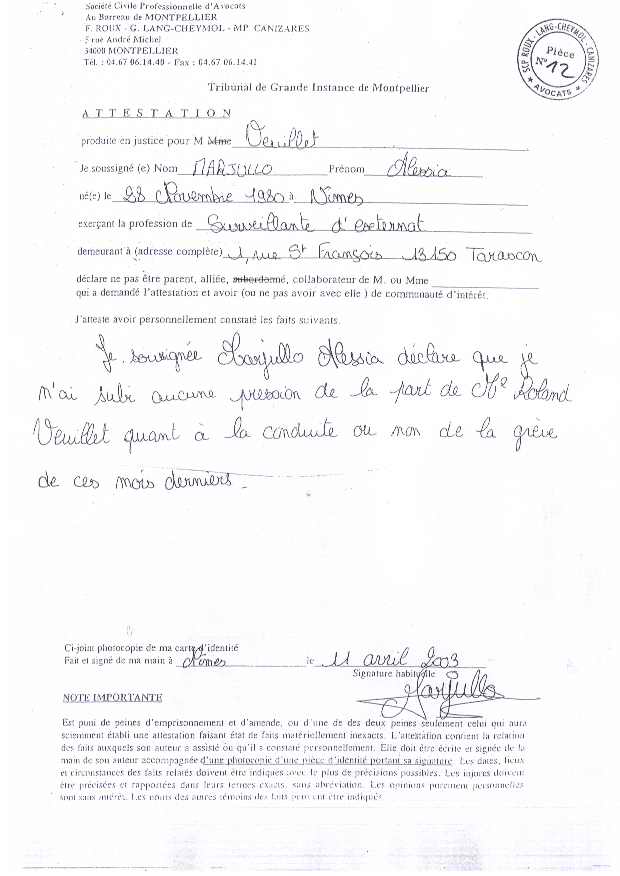 Société Civile Professionnelle d'Avocats
Au Barreau de MONTPELLIER
F. ROUX - G. LANG-CHEYMOL - MP. CANIZARES
5 rue André Michel
34000 MONTPELLIER
Tél. : 04.67 06.14.40 - Fax : 04.67 06.14.41
SCP ROUX - LANG-CHEYMOL - CANIZARES
Pièce
N° 12
* AVOCATS *
Tribunal de Grande Instance de Montpellier
ATTESTATION
produite en justice pour M Mme Veuillet
Je soussigné (e) Nom MARJULLO Prénom Alessia
né(e) le 28 Novembre 1980 à Nîmes
exerçant la profession de Surveillante d'externat
demeurant à (adresse complète) 1, rue St François 13150 Tarascon
déclare ne pas être parent, alliée, subordonné, collaborateur de M. ou Mme
qui a demandé l'attestation et avoir (ou ne pas avoir avec elle ) de communauté d'intérêt.
J'atteste avoir personnellement constaté les faits suivants.
Je soussignée Marjullo Alessia déclare que je
n'ai subi aucune pression de la part de Mr Roland
Veuillet quant à la conduite ou non de la grève
de ces mois derniers.
Ci-joint photocopie de ma carte d'identité
Fait et signé de ma main à Nîmes le 11 avril 2003
Signature habituelle
Marjullo
NOTE IMPORTANTE
Est puni de peines d'emprisonnement et d'amende, ou d'une de des deux peines seulement celui qui aura
sciemment établi une attestation faisant état de faits matériellement inexacts. L'attestation contient la relation
des faits auxquels son auteur a assisté ou qu'il a constaté personnellement. Elle doit être écrite et signée de la
main de son auteur accompagnée d'une photocopie d'une pièce d'identité portant sa signature. Les dates, lieux
et circonstances des faits relatés doivent être indiqués avec le plus de précisions possibles. Les injures doivent
être précisées et rapportées dans leurs termes exacts, sans abréviation. Les opinions purement personnelles
sont sans intérêt. Les noms des autres témoins des faits peuvent être indiqués.